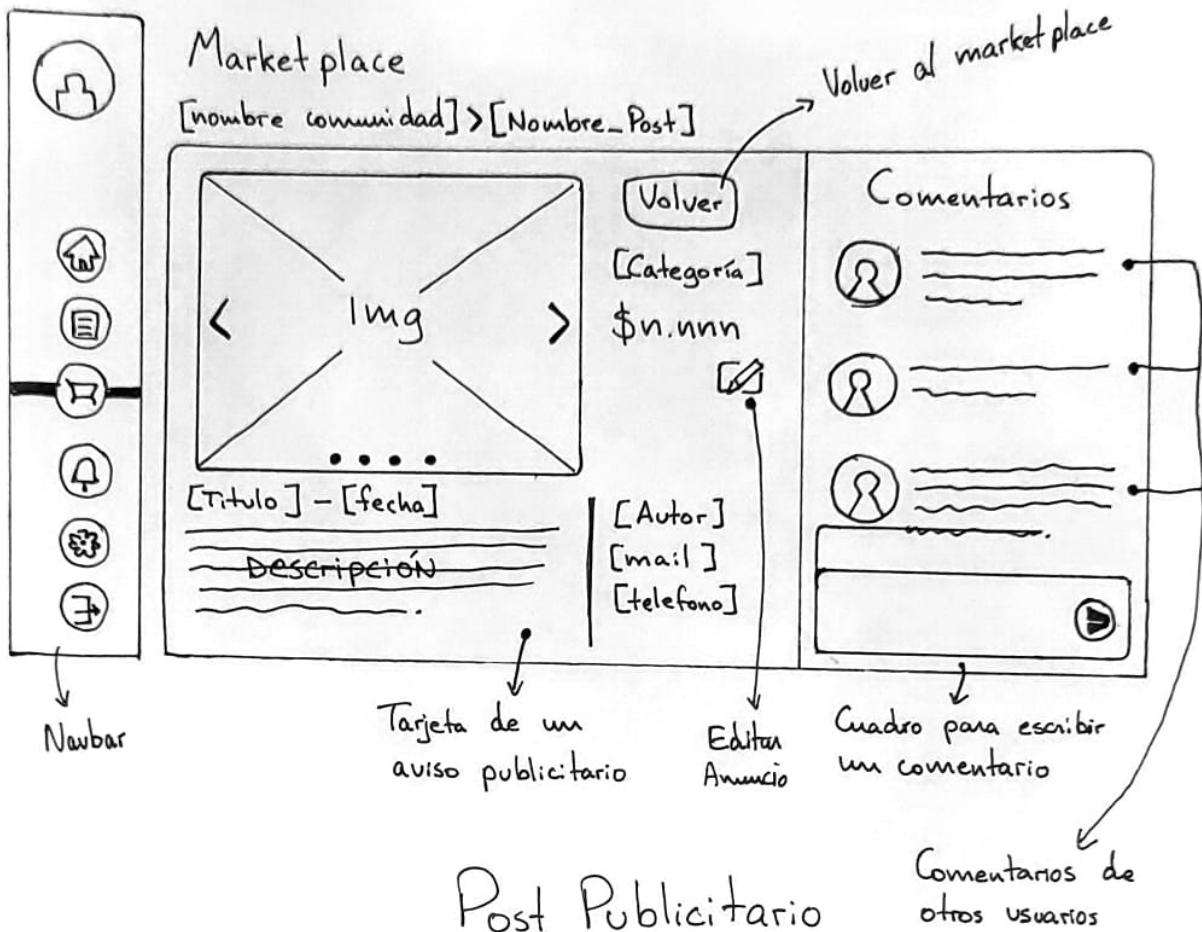 Marketplace
[nombre comunidad] > [Nombre_Post]
Volver al marketplace
Volver
[Categoría]
$n.nnn
Img
[Titulo] - [fecha]
Descripción
[Autor]
[mail]
[telefono]
Comentarios
Navbar
Tarjeta de un
aviso publicitario
Editar
Anuncio
Cuadro para escribir
un comentario
Comentarios de
otros usuarios
Post Publicitario